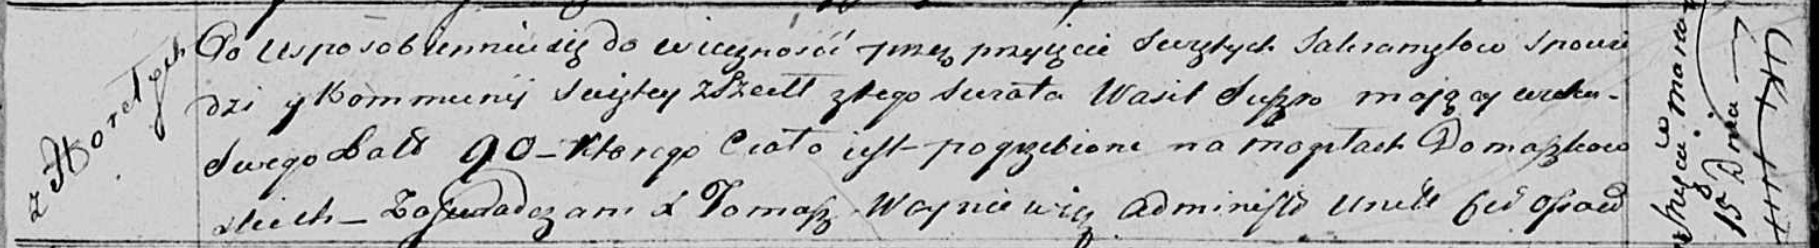 z Horełych
Po Usposobienniu się do wiecznosci przez przyięcie Swiętych Sakramętow Spowie
dzi y Kommunij Swiętey zszedł ztego Swiata Wasil Suszko maiący wieku
Swego Lat 90 – Ktorego Ciało iest pogrzebione na mogiłach Domaszkow
skich – Zaswiadczam X Tomasz Woyniewicz Administr
15 Dnia